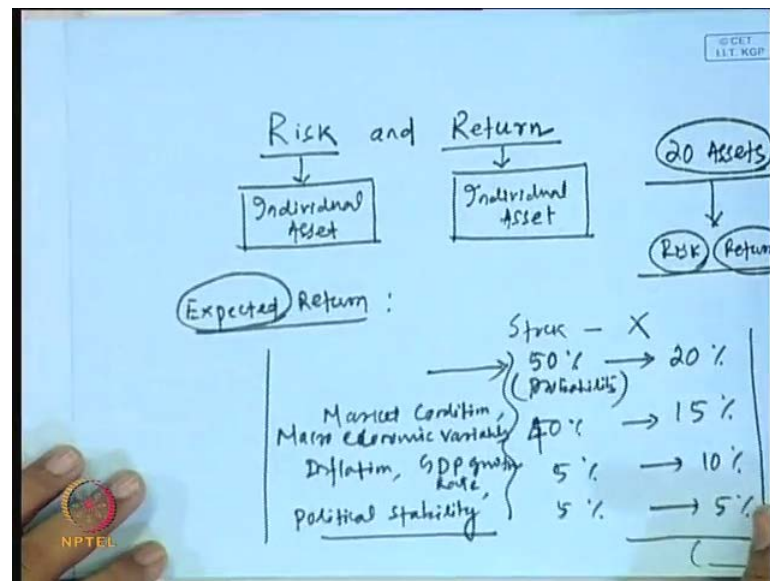 © CET
I.I.T. KGP
Risk and Return
Individual Asset
Individual Asset
20 Assets
Risk Return
Expected Return :
Stock - X
50 % → 20 %
(Probability)
Market Condition,
Macro economic variable 40 % → 15 %
Inflation, GDP growth rate, 5 % → 10 %
Political Stability 5 % → 5 %
(
NPTEL